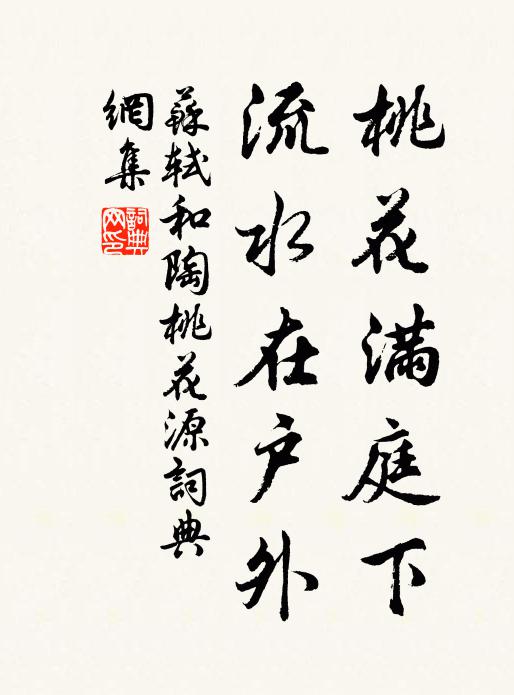 桃花滿庭下
流水在户外
蘇軾和陶桃花源詞典
網集
詞典
网印